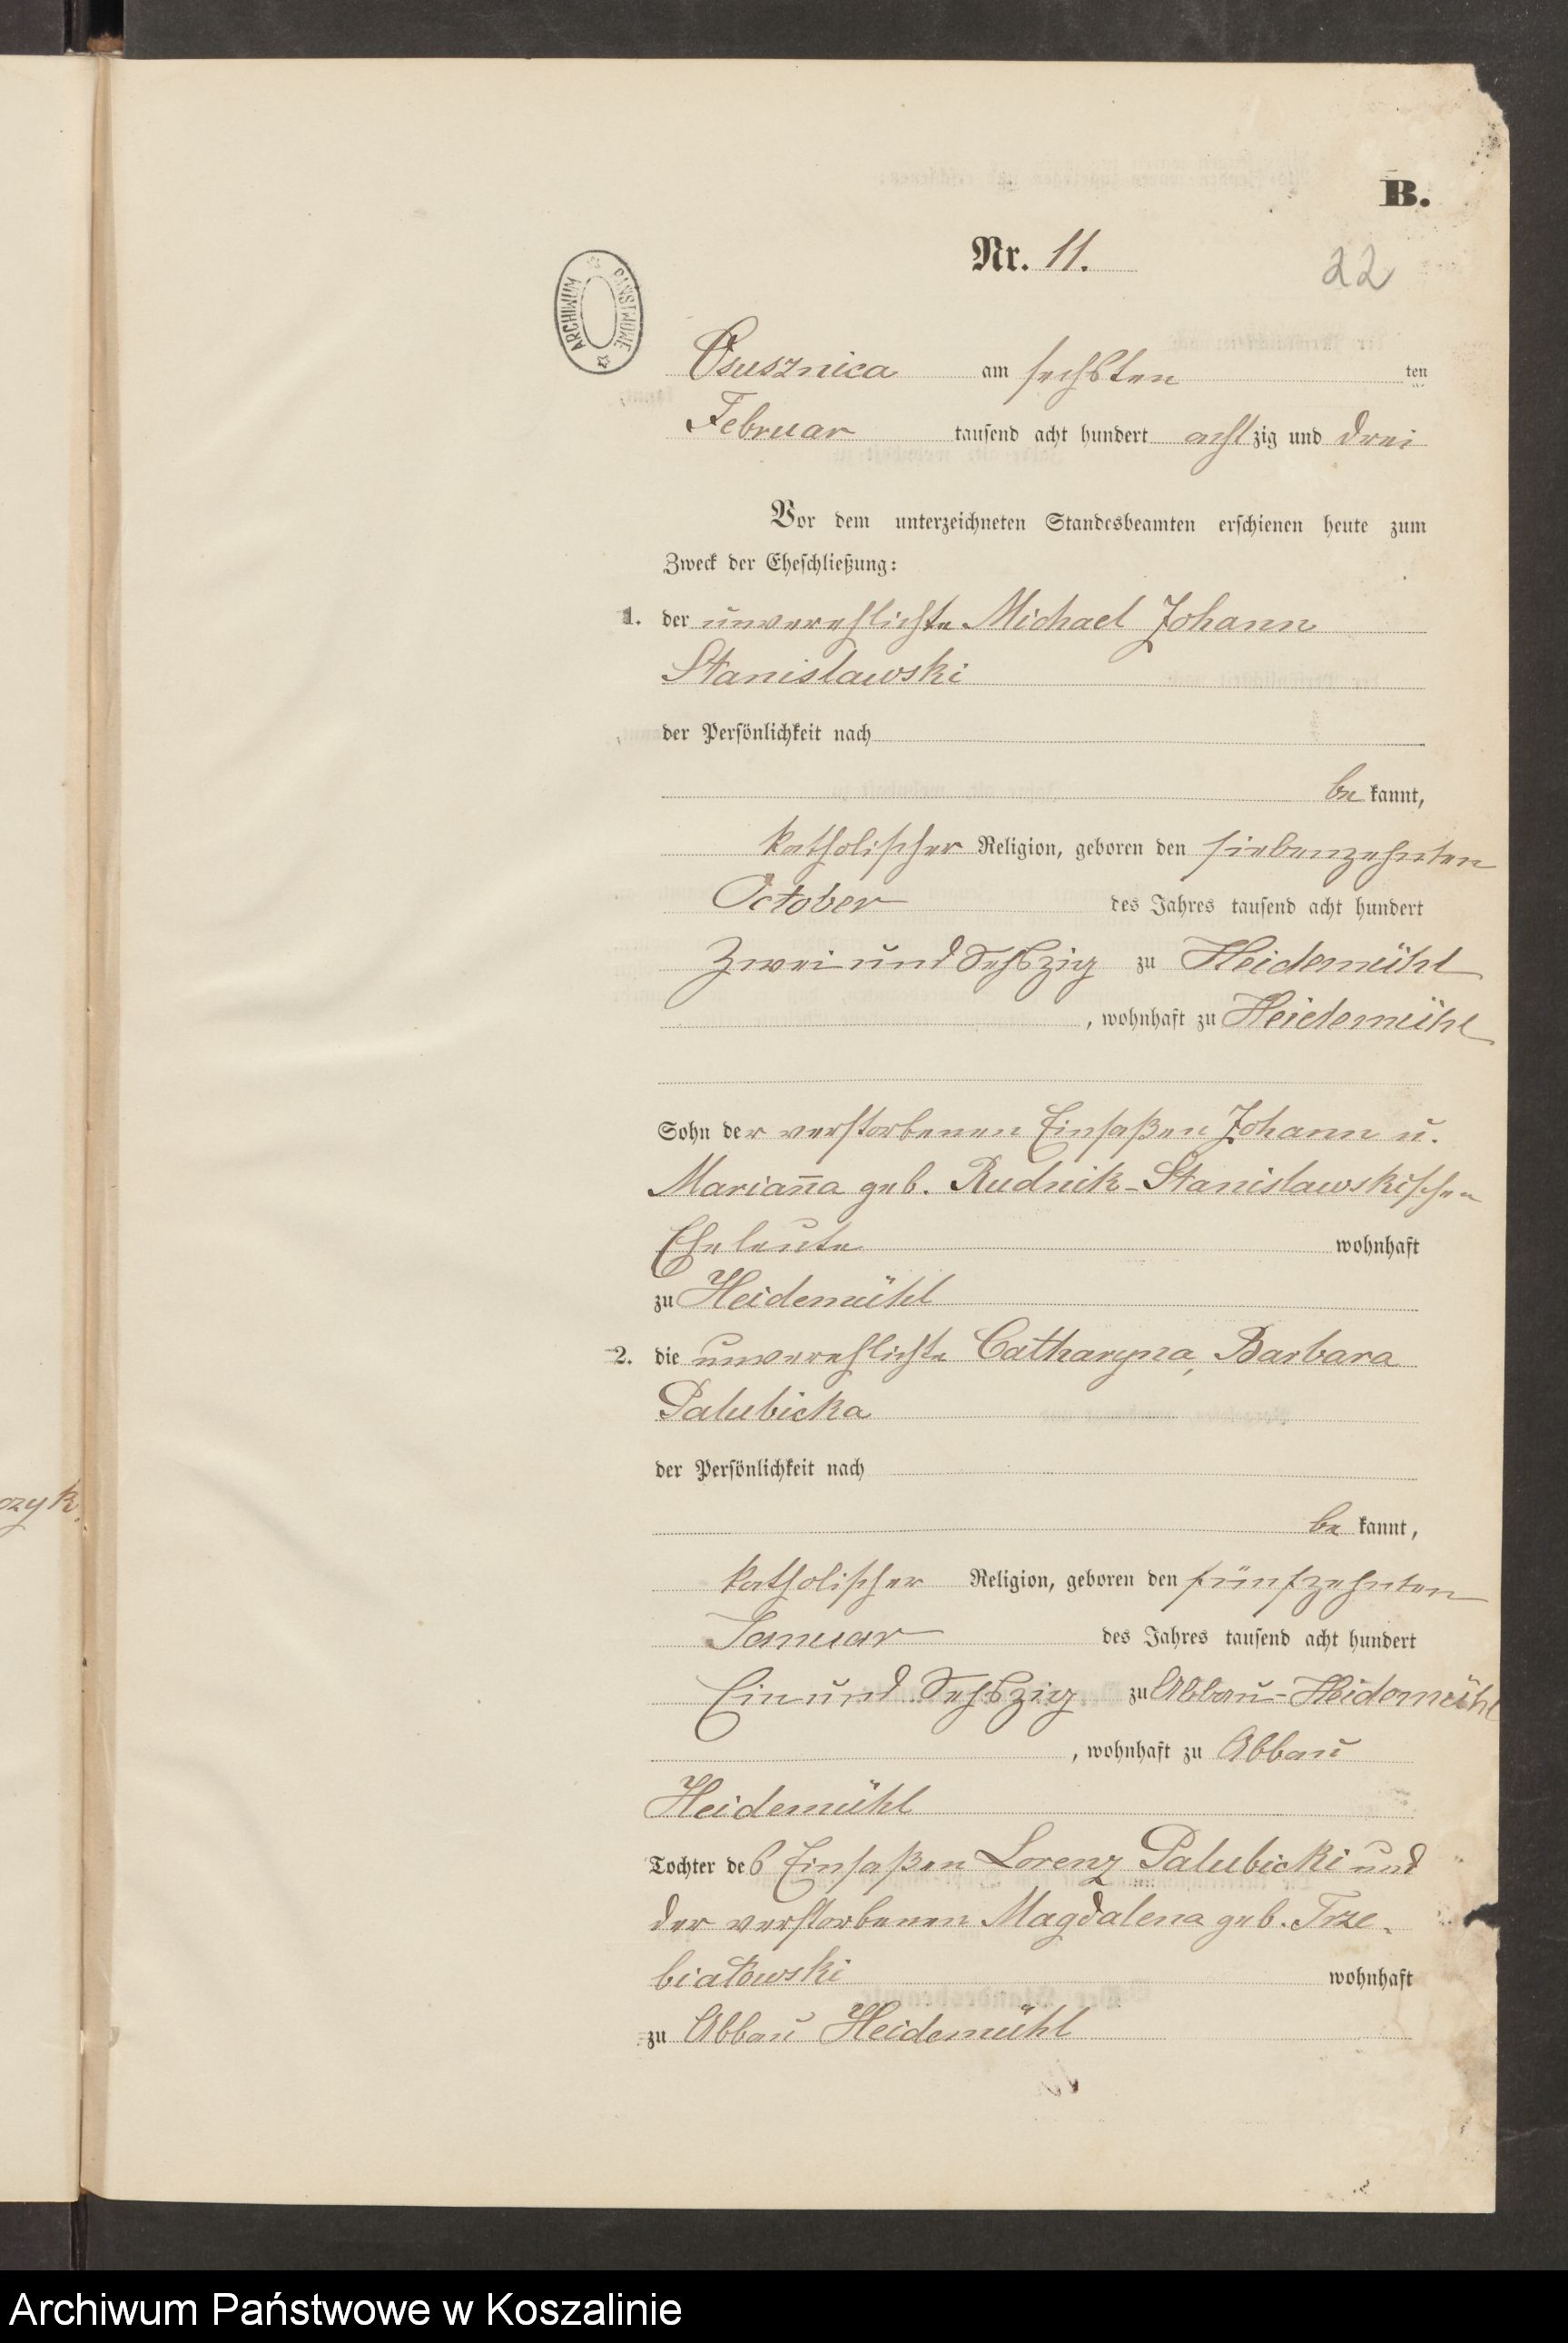 B.
Nr. 11.
22
ARCHIWUM PAŃSTWOWE
Osusznica am sechsten ten
Februar tausend acht hundert achtzig und drei
Vor dem unterzeichneten Standesbeamten erschienen heute zum
Zweck der Eheschließung:
1. der unverehlichte Michael Johann
Stanislawski
der Persönlichkeit nach
be kannt,
katholischer Religion, geboren den siebenzehnten
October des Jahres tausend acht hundert
Zwei und Sechszig zu Heidemühl
, wohnhaft zu Heidemühl
Sohn der verstorbenen Einsaßen Johann u.
Marian̄a geb. Rudnik-Stanislawskischen
Eheleute wohnhaft
zu Heidemühl
2. die unverehlichte Catharyna, Barbara
Palubicka
der Persönlichkeit nach
be kannt,
katholischer Religion, geboren den fünfzehnten
Januar des Jahres tausend acht hundert
Ein und Sechszig zu Abbau-Heidemühl
, wohnhaft zu Abbau
Heidemühl
Tochter des Einsaßen Lorenz Palubicki und
der verstorbenen Magdalena geb. Trze-
biatowski wohnhaft
zu Abbau Heidemühl
czyk.
Archiwum Państwowe w Koszalinie